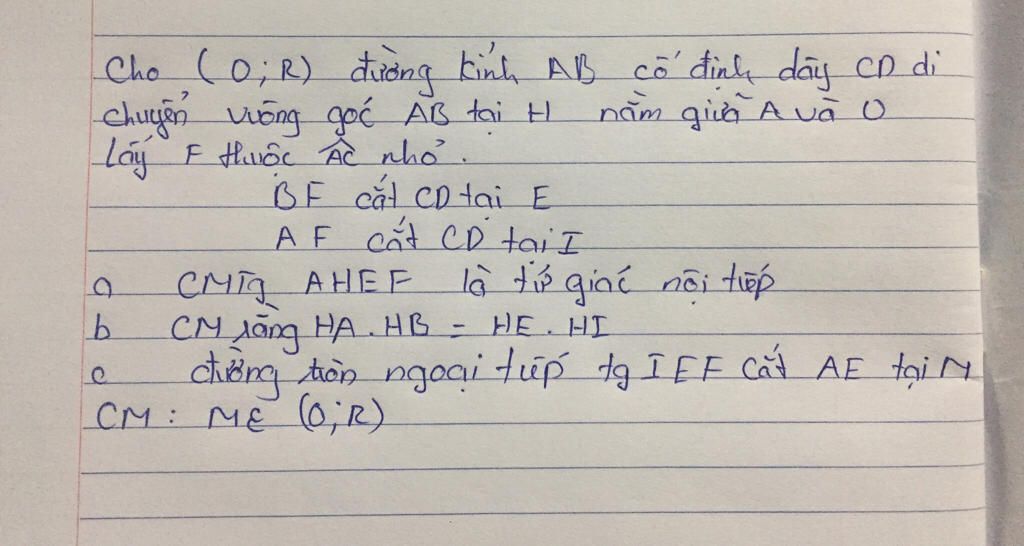 Cho (O;R) đường kính AB cố định dây CD di
chuyển vuông góc AB tại H nằm giữa A và O
lấy F thuộc AC nhỏ.
BF cắt CD tại E
AF cắt CD tại I
a CMTg AHEF là tứ giác nội tiếp
b CM rằng HA.HB = HE.HI
c đường tròn ngoại tiếp tg IEF cắt AE tại M
CM: M∈ (O;R)